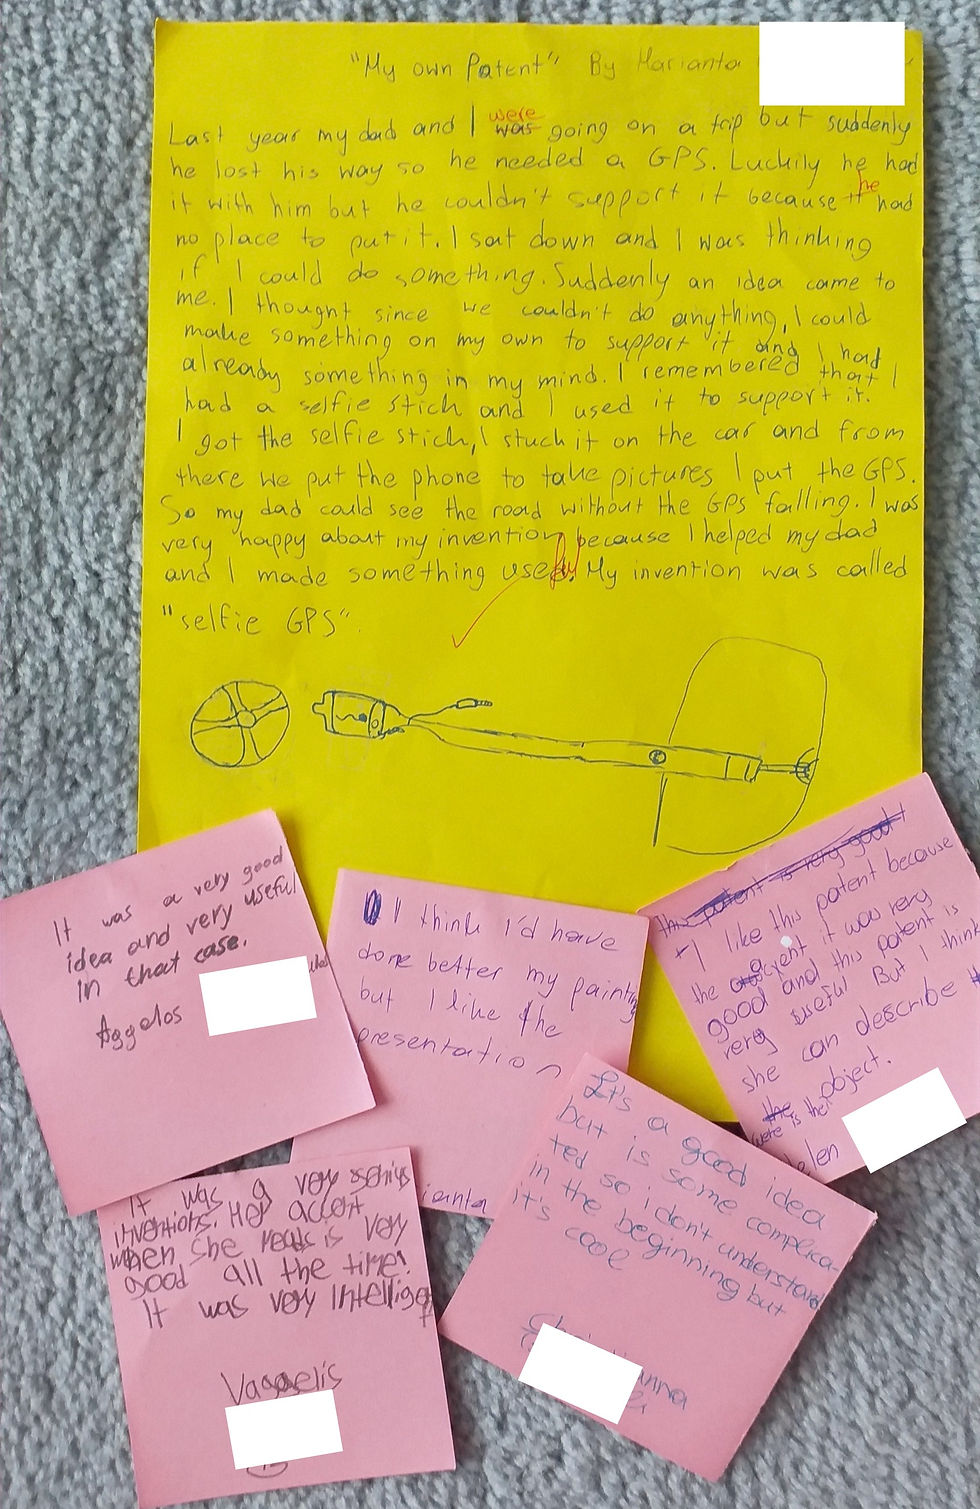 "My own Patent" By Marianta
Last year my dad and I were was going on a trip but suddenly
he lost his way so he needed a GPS. Luckily he had
it with him but he couldn't support it because it he had
no place to put it. I sat down and I was thinking
if I could do something. Suddenly an idea came to
me. I thought since we couldn't do anything, I could
make something on my own to support it and I had
already something in my mind. I remembered that I
had a selfie stich and I used it to support it.
I got the selfie stich, I stuch it on the car and from
there we put the phone to take pictures I put the GPS.
So my dad could see the road without the GPS falling. I was
very happy about my invention because I helped my dad
and I made something useful. My invention was called
"selfie GPS".
It was a very good
idea and very useful
in that case.
Aggelos
I think I'd have
done better my painting
but I like the
presentation
ianta
this patent is very good
I like this patent because
the accent it was very
good and this patent is
very useful But I think
she can describe
the object.
were is the
elen
It was a very
inventions. Her accent
when she reads is very
good all the time!
It was very intelligent
Vaggelis
It's a good idea
but is some complica-
ted so i don't understand
in the beginning but
it's cool
anna